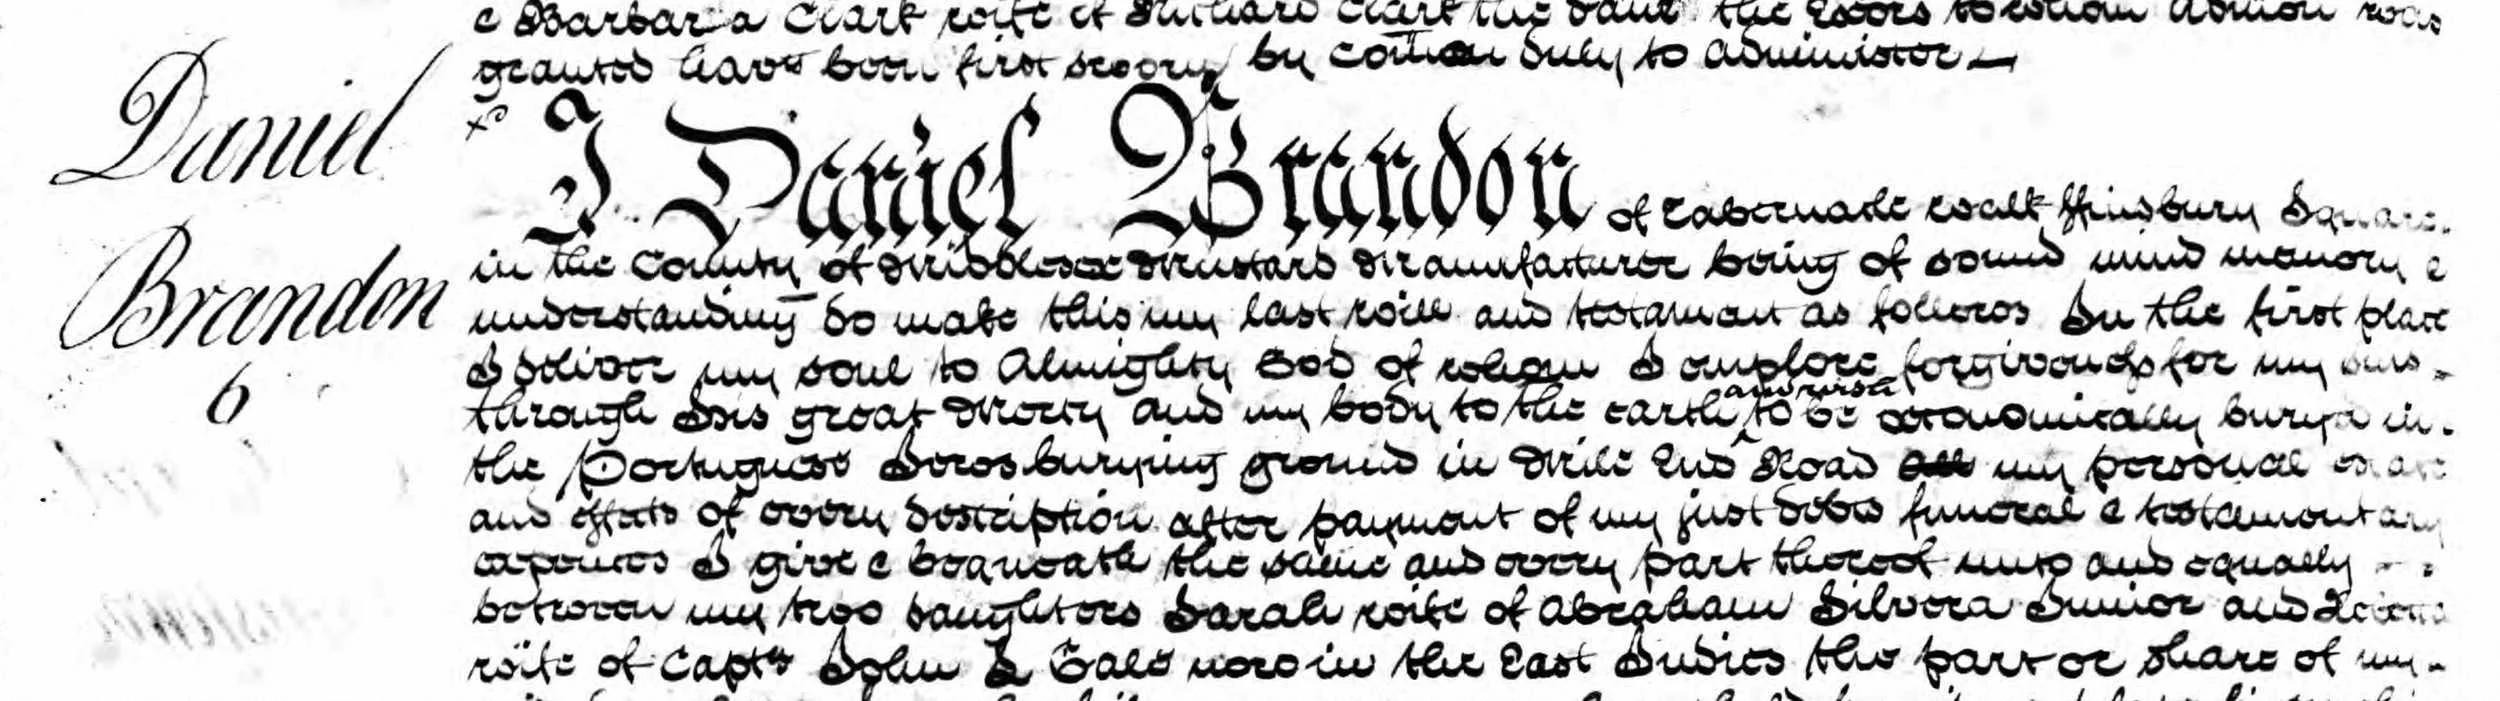 & Barbara Clark wife of Richard Clark the the Exors to whom Admon was
granted have been first sworn by Com̄on duly to administer
Daniel
Brandon
6
I Daniel Brandon of Tabernacle walk ffinsbury Square
in the County of Middlesex Mustard Manufacturer being of sound mind memory &
understanding do make this my last will and testament as follows In the first place
I deliver my soul to Almighty God of whom I implore forgiveness for my sins
through His great Mercy and my body to the earth and wish to be economically buryed in
the Portuguese Jews burying ground in Mile End Road All my personal estate
and effects of every description after payment of my just debts funeral & testamentary
expences I give & bequeath the same and every part thereof unto and equally
between my two daughters Sarah wife of Abraham Silvera Junior and
wife of Captn John L Gale now in the East Indies the part or share of my